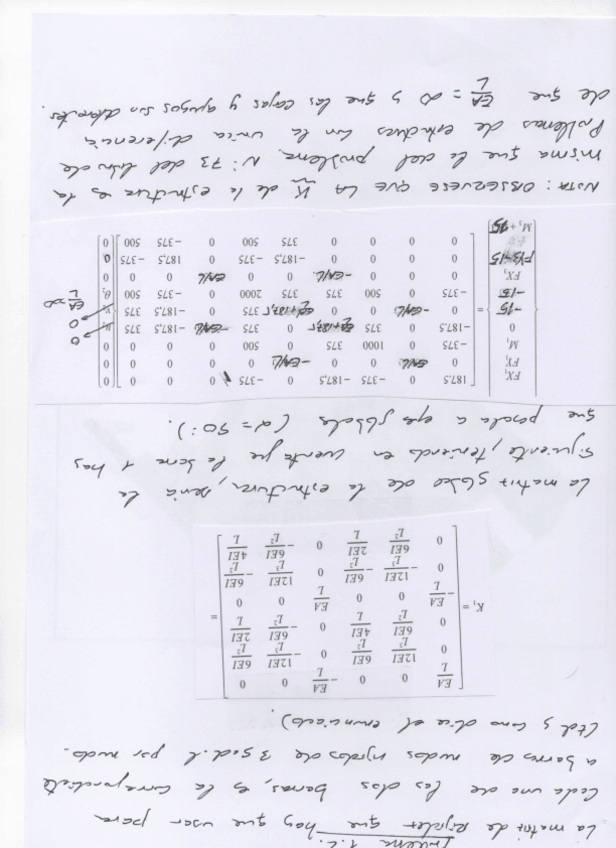 Problema 1.2.
La matriz de Rigidez que hay que usar para
cada una de las dos barras, es la correspondiente
a barras de nudos rígidos de 3 g.d.l por nudo.
(td y como dice el enunciado).
K₁ = [ EA/L 0 0 −EA/L 0 0
0 12EI/L³ 6EI/L² 0 −12EI/L³ 6EI/L²
0 6EI/L² 4EI/L 0 −6EI/L² 2EI/L
−EA/L 0 0 EA/L 0 0
0 −12EI/L³ −6EI/L² 0 12EI/L³ −6EI/L²
0 6EI/L² 2EI/L 0 −6EI/L² 4EI/L ] =
La matriz global de la estructura, sería la
siguiente, teniendo en cuenta que la barra 1 hay
que pasarla a ejes globales (α = 90º).
FX₁ 187,5 0 −375 −187,5 0 −375 0 0 0 0
FY₁ 0 EA/L 0 0 −EA/L 0 0 0 0 0
M₁ −375 0 1000 375 0 500 0 0 0 0
0 −187,5 0 375 0 375 −EA/L 0 0 → 0
−15 0 −EA/L 0 0 375 0 −187,5 375 → 0
−15 −375 0 500 375 375 2000 0 −375 500 θ₂ EA/L = ∞
FX₃ 0 0 0 −EA/L 0 0 EA/L 0 0 0
FY₃−15 0 0 0 0 −187,5 −375 0 187,5 −375 0
M₃+ 0 0 0 0 375 500 0 −375 500 0
NOTA: OBSERVESE QUE LA K de la estructura es la
misma que la del problema N: 73 del libro de
Problemas de estructuras con la unica diferencia
de que EA/L = ∞ y que las cargas y apoyos son diferentes.